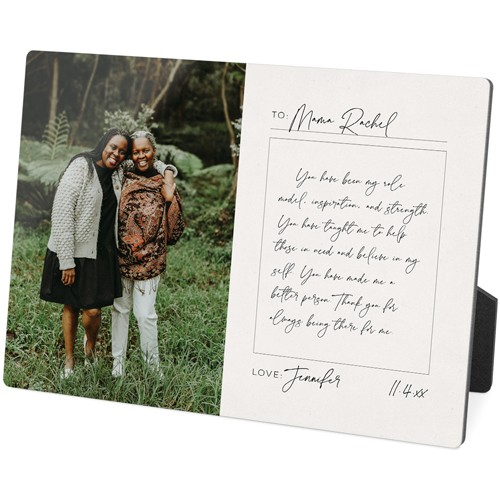 TO: Mama Rachel
You have been my role
model, inspiration, and strength.
You have taught me to help
those in need and believe in my
self. You have made me a
better person. Thank you for
always being there for me.
LOVE: Jennifer 11.4.xx